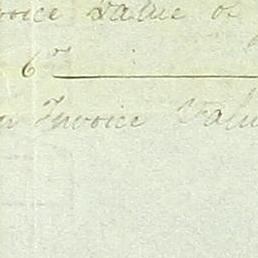 voice Value of
6
Invoice Valu